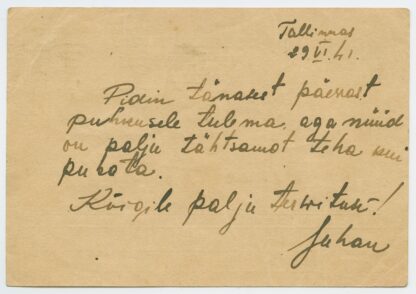 Tallinnas
29 VI. 41.
Pidin tänasest päevast
puhkusele tulema, aga nüüd
on palju tähtsamat teha kui
puhata.
Kõigile palju tervitusi!
Juhan